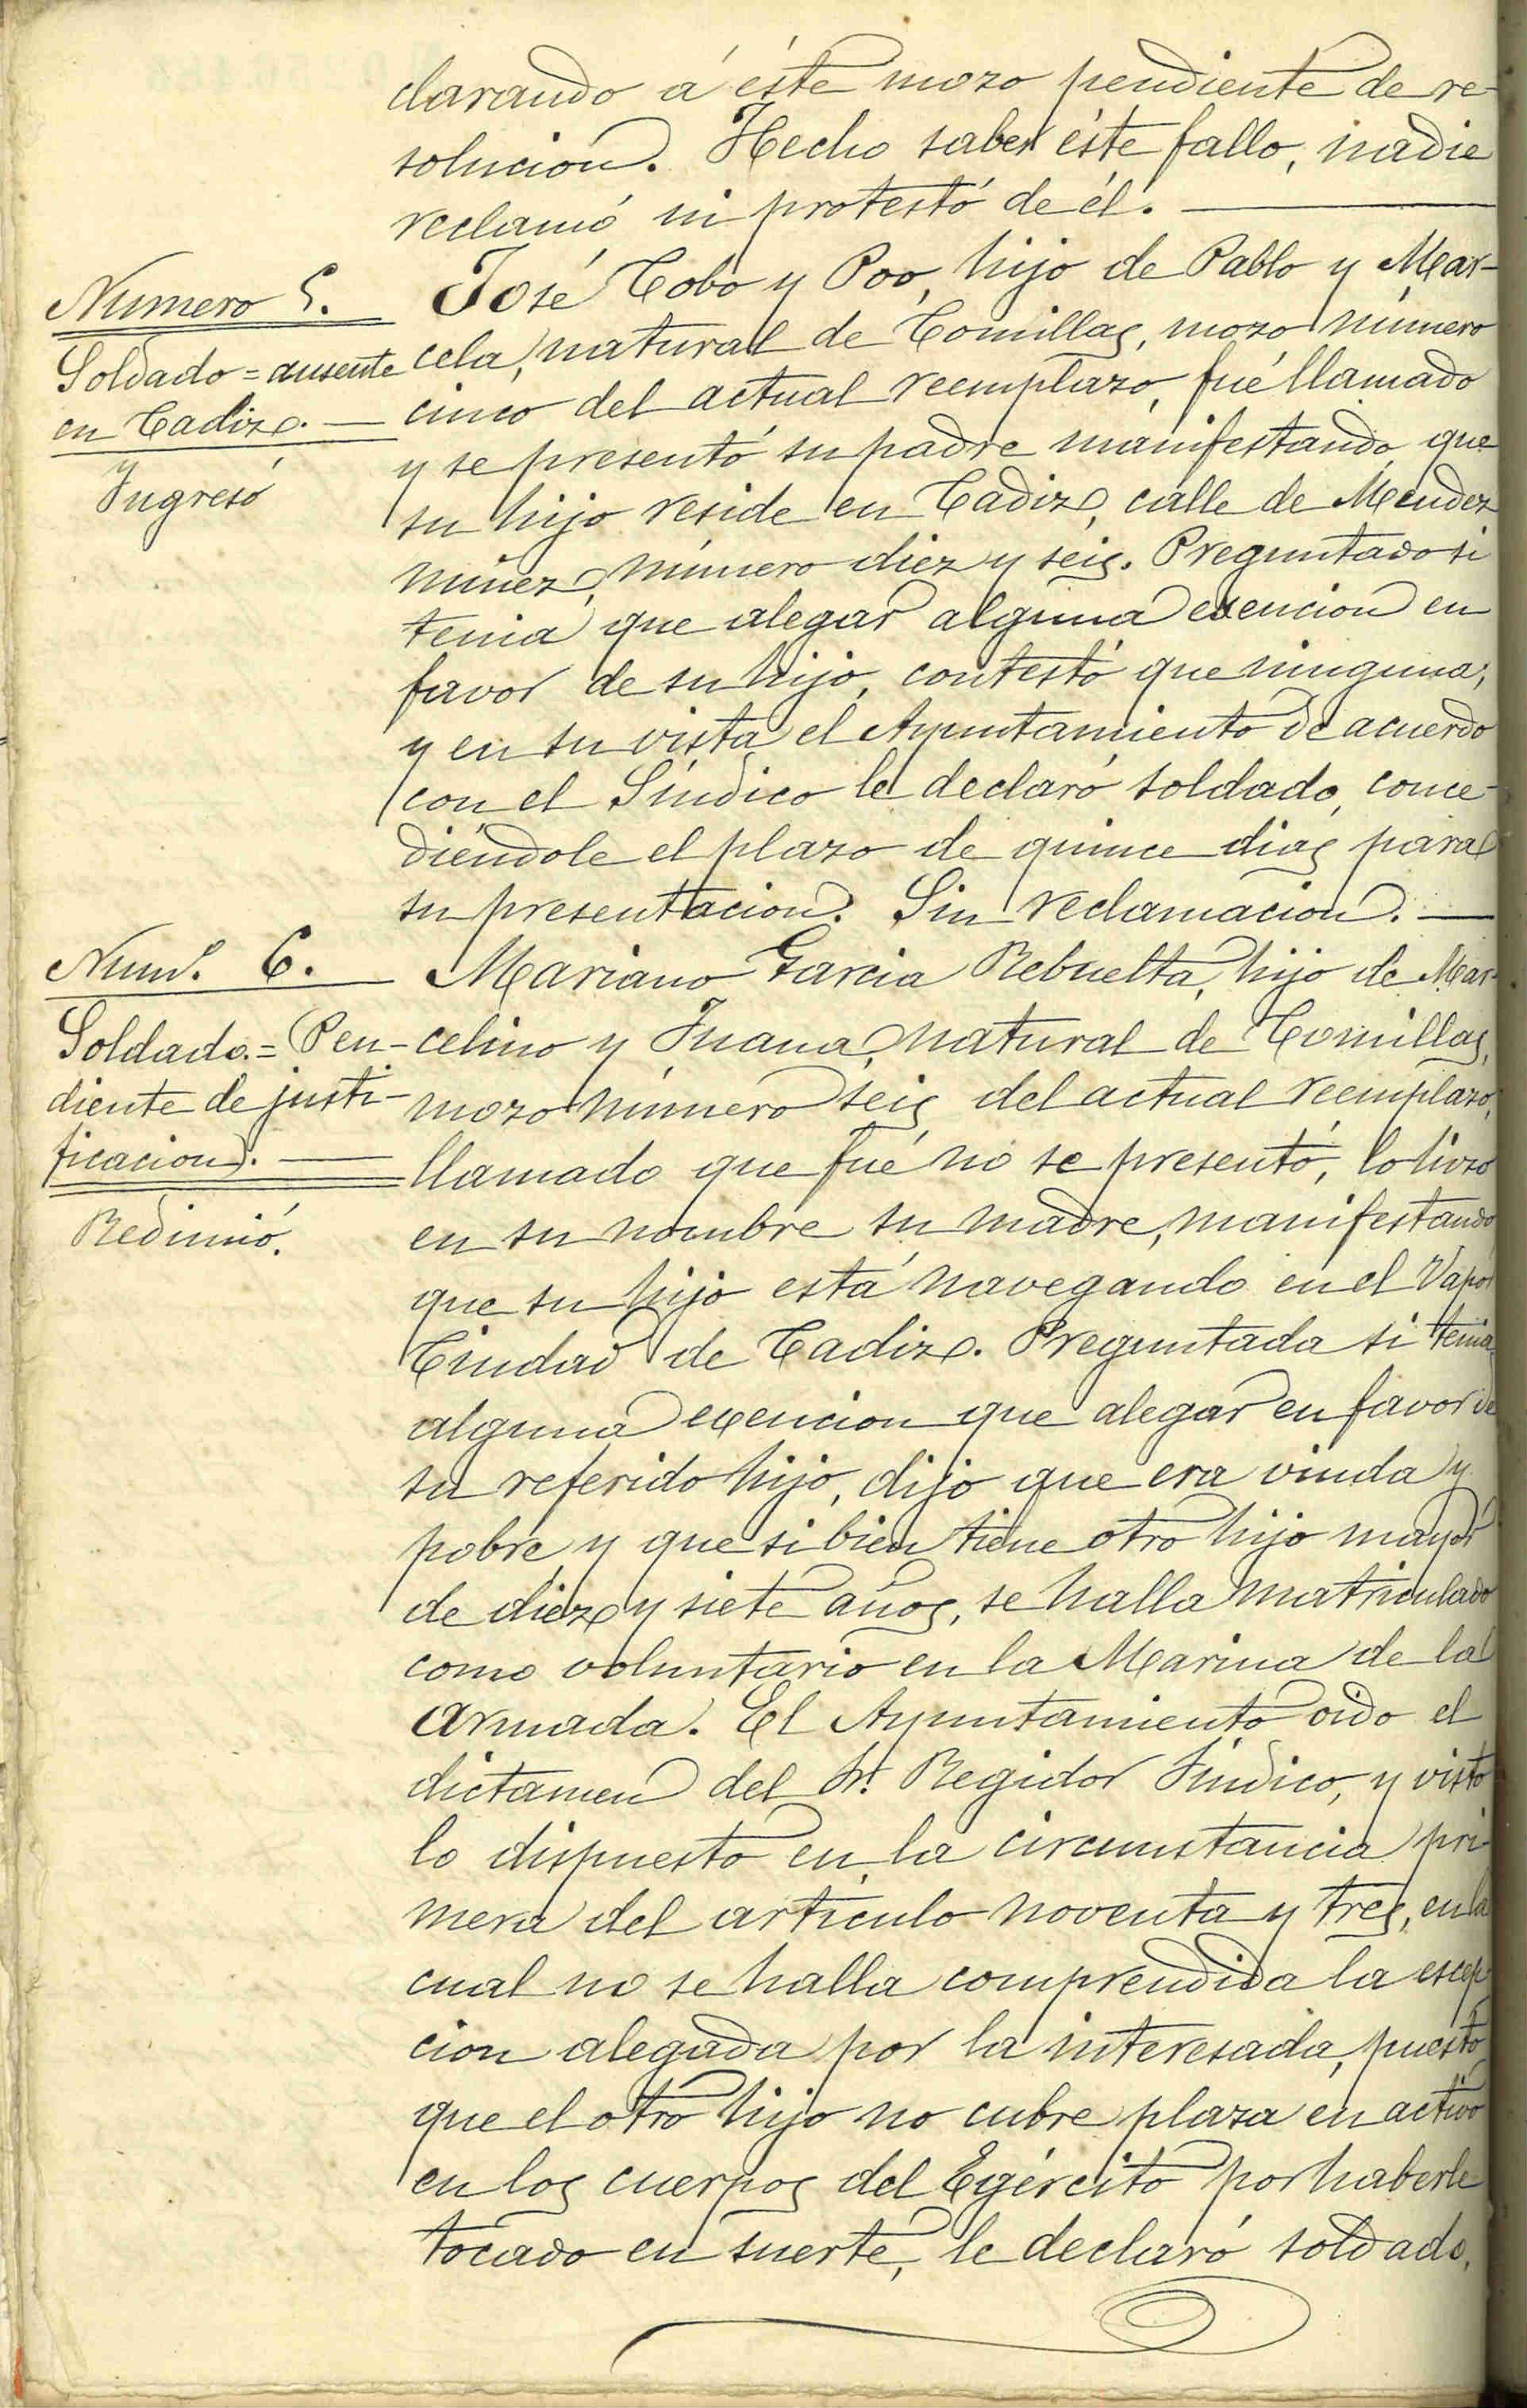 clarando á éste mozo pendiente de re-
solucion. Hecho saber éste fallo, nadie
reclamó ni protestó de él.
Número 5.
Soldado = ausente
en Cadiz.
Ingresó
José Cobo y Poo, hijo de Pablo y Mar-
cela, natural de Comillas, mozo número
cinco del actual reemplazo, fué llamado
y se presentó su padre manifestando que
su hijo reside en Cadiz, calle de Mendez
nuñez, número diez y seis. Preguntado si
tenia que alegar alguna exencion en
favor de su hijo, contestó que ninguna;
y en su vista el Ayuntamiento de acuerdo
con el Síndico le declaró soldado, conce-
diéndole el plazo de quince dias para
su presentacion. Sin reclamacion.
Numº. 6.
Soldado. = Pen-
diente de justi-
ficacion.
Redimió.
Mariano Garcia Rebuelta, hijo de Mar-
celino y Juana, natural de Comillas,
mozo número seis del actual reemplazo,
llamado que fué no se presentó, lo hizo
en su nombre su madre, manifestando
que su hijo está navegando en el Vapor
Ciudad de Cadiz. Preguntada si tenia
alguna exencion que alegar en favor de
su referido hijo, dijo que era viuda y
pobre y que si bien tiene otro hijo mayor
de diez y siete años, se halla matriculado
como voluntario en la Marina de la
Armada. El Ayuntamiento oido el
dictamen del Sr. Regidor Síndico, y visto
lo dispuesto en la circunstancia pri-
mera del artículo noventa y tres, en la
cual no se halla comprendida la escep-
cion alegada por la interesada, puesto
que el otro hijo no cubre plaza en activo
en los cuerpos del Egército por haberle
tocado en suerte, le declaró soldado,